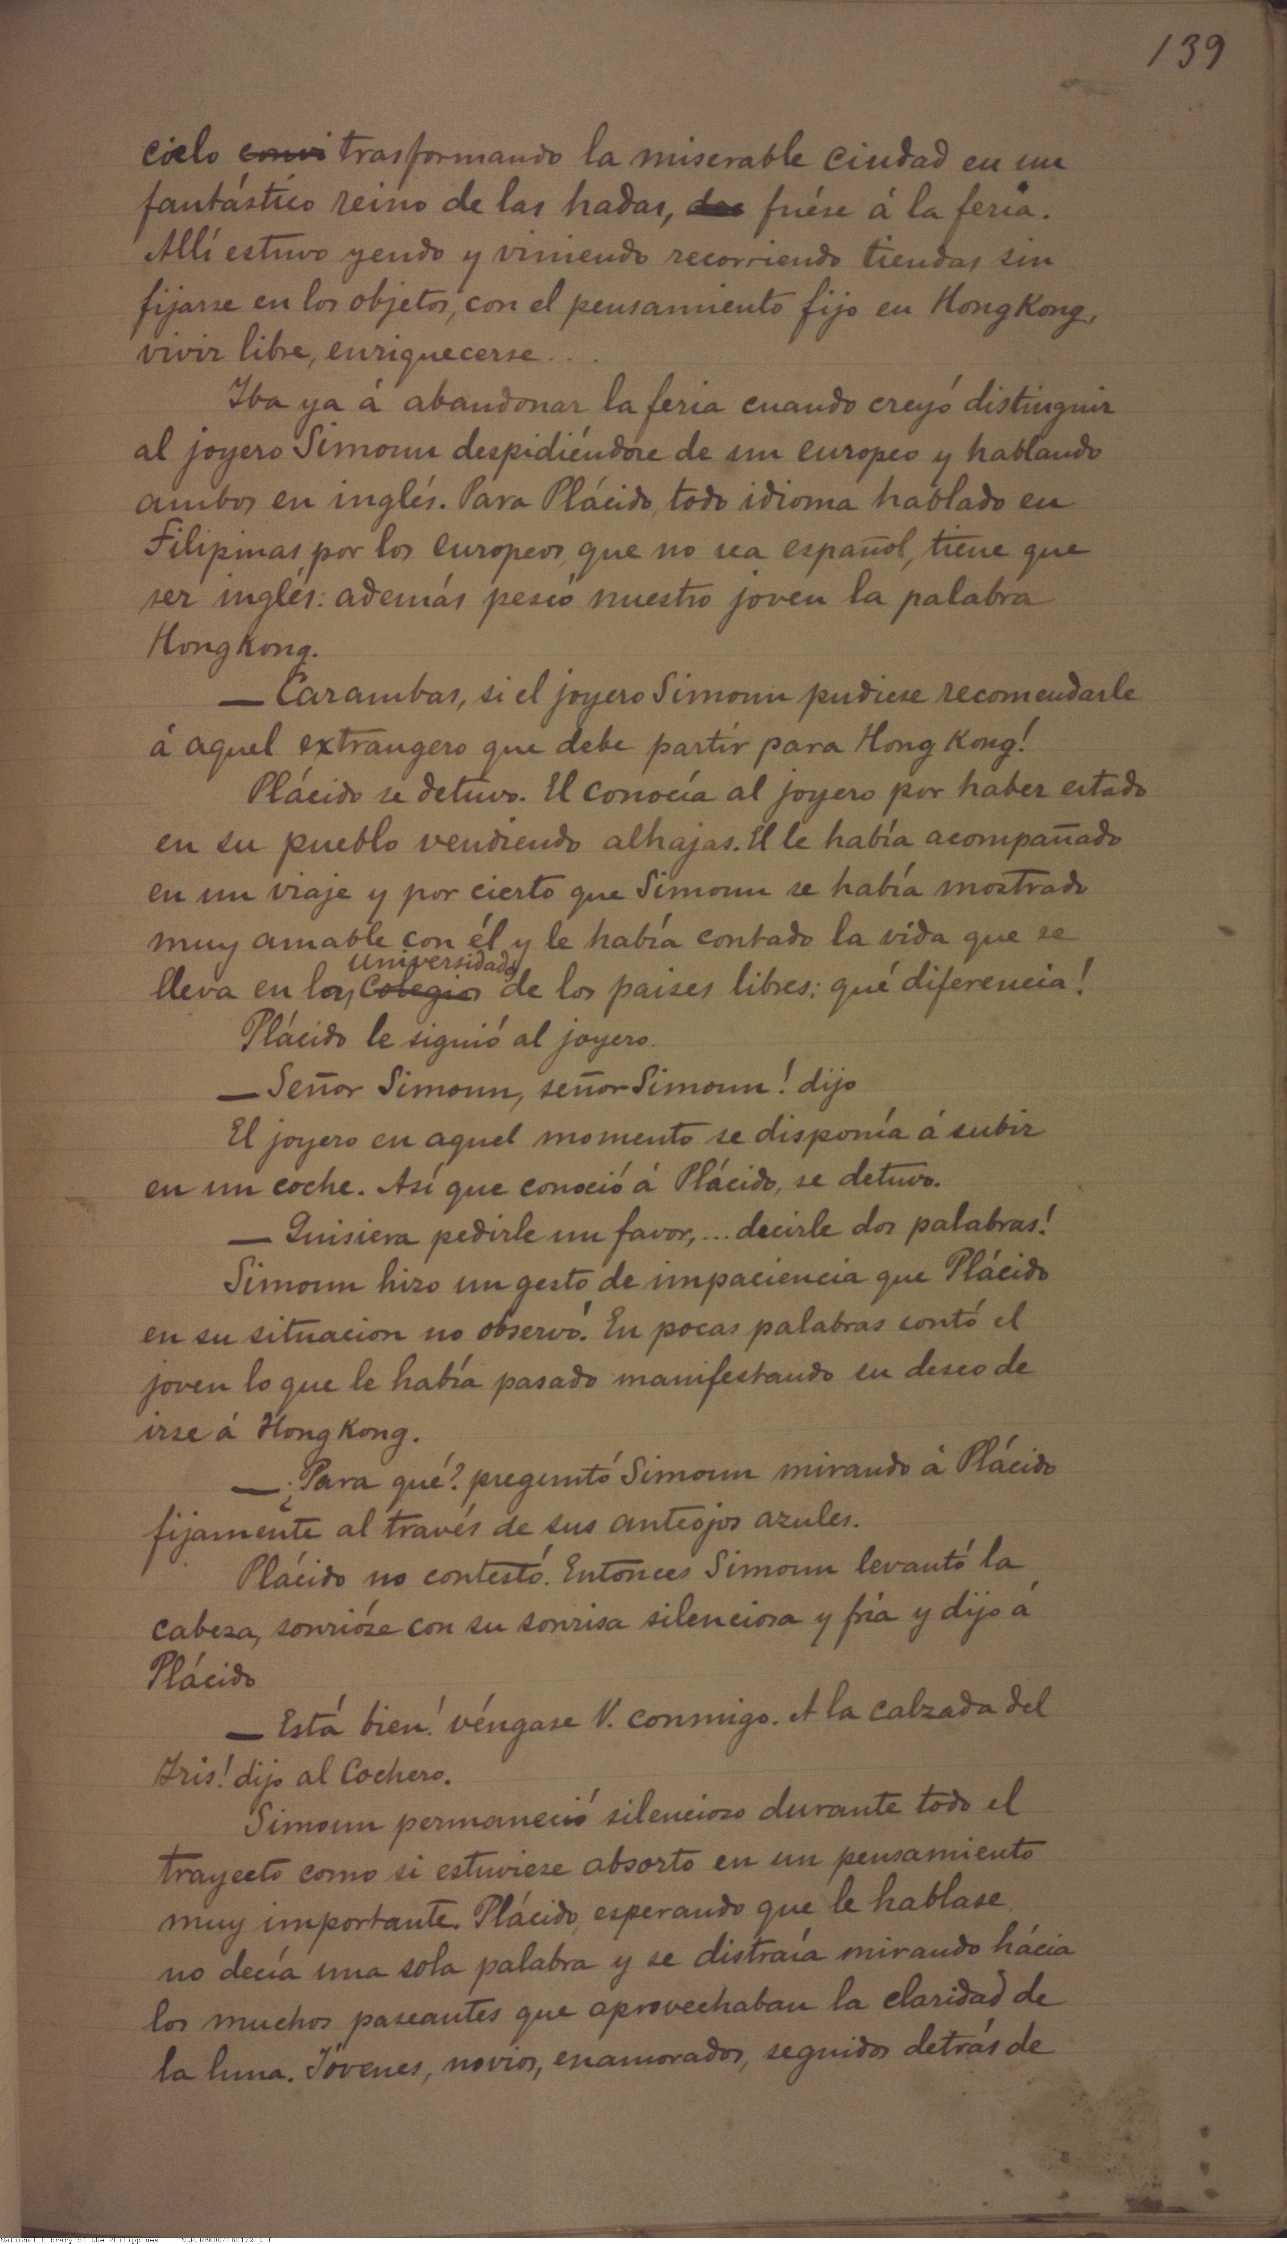 139
cielo convi trasformando la miserable ciudad en un
fantástico reino de las hadas, fuése á la feria.
Allí estuvo yendo y viniendo recorriendo tiendas sin
fijarse en los objetos, con el pensamiento fijo en Hong Kong,
vivir libre, enriquecerse....
Iba ya á abandonar la feria cuando creyó distinguir
al joyero Simoun despidiéndose de un europeo y hablando
ambos en inglés. Para Plácido, todo idioma hablado en
Filipinas por los europeos, que no sea español, tiene que
ser inglés: además pescó nuestro joven la palabra
Hong kong.
— Carambas, si el joyero Simoun pudiese recomendarle
á aquel extrangero que debe partir para Hong Kong!
Plácido se detuvo. El conocía al joyero por haber estado
en su pueblo vendiendo alhajas. El le había acompañado
en un viaje y por cierto que Simoun se había mostrado
muy amable con él y le había contado la vida que se
Universidades
lleva en los Colegios de los paises libres: qué diferencia!
Plácido le siguió al joyero.
— Señor Simoun, señor Simoun! dijo
El joyero en aquel momento se disponía á subir
en un coche. Así que conoció á Plácido, se detuvo.
— Quisiera pedirle un favor,... decirle dos palabras!
Simoun hizo un gesto de impaciencia que Plácido
en su situacion no observó. En pocas palabras contó el
joven lo que le había pasado manifestando su deseo de
irse á Hong Kong.
— ¿Para qué? preguntó Simoun mirando á Plácido
fijamente al través de sus anteojos azules.
Plácido no contestó. Entonces Simoun levantó la
cabeza, sonrióse con su sonrisa silenciosa y fría y dijo á
Plácido
— Está bien! véngase V. conmigo. A la calzada del
Iris! dijo al Cochero.
Simoun permaneció silencioso durante todo el
trayecto como si estuviese absorto en un pensamiento
muy importante. Plácido, esperando que le hablase,
no decía una sola palabra y se distraía mirando hácia
los muchos paseantes que aprovechaban la claridad de
la luna. Jóvenes, novios, enamorados, seguidos detrás de